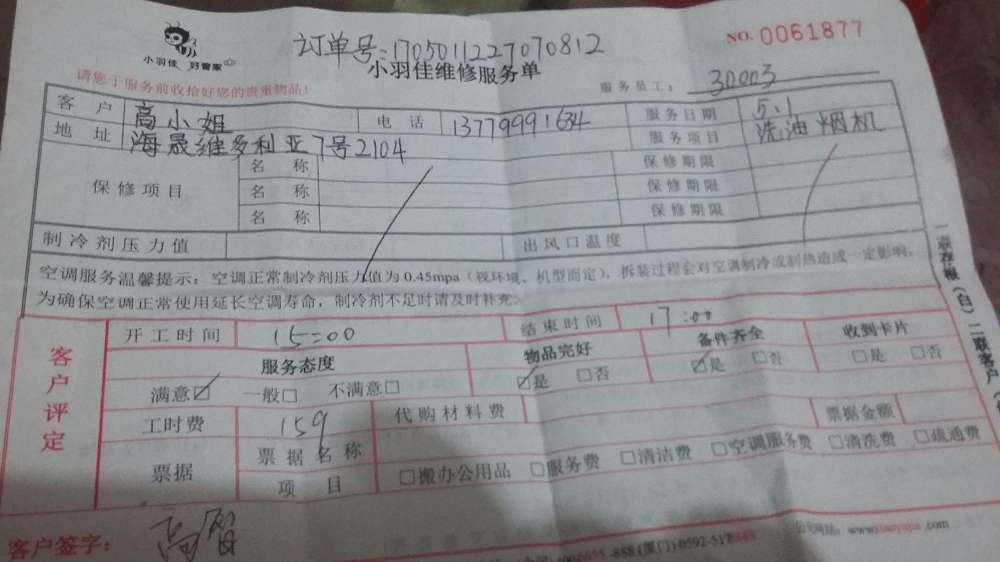 小羽佳 好管家
订单号:1705011227070812
NO. 0061877
小羽佳维修服务单
请您于服务前收拾好您的贵重物品!
服务员工: 30003
客户 高小姐 电话 13779991634 服务日期 5.1
地址 海晟维多利亚7号2104 服务项目 洗油烟机
保修项目 名称 保修期限
名称 保修期限
名称 保修期限
制冷剂压力值 出风口温度
空调服务温馨提示:空调正常制冷剂压力值为0.45mpa(视环境、机型而定),拆装过程会对空调制冷或制热造成一定影响,
为确保空调正常使用延长空调寿命,制冷剂不足时请及时补充。
客户评定
开工时间 15:00 结束时间 17:00
服务态度 物品完好 备件齐全 收到卡片
满意☑ 一般□ 不满意□ ☑是 □否 ☑是 □否 □是 □否
工时费 159 代购材料费 票据金额
票据 票据名称
项目 □搬办公用品 □服务费 □清洁费 □空调服务费 □清洗费 □疏通费
客户签字:
一联存根(白)二联客户